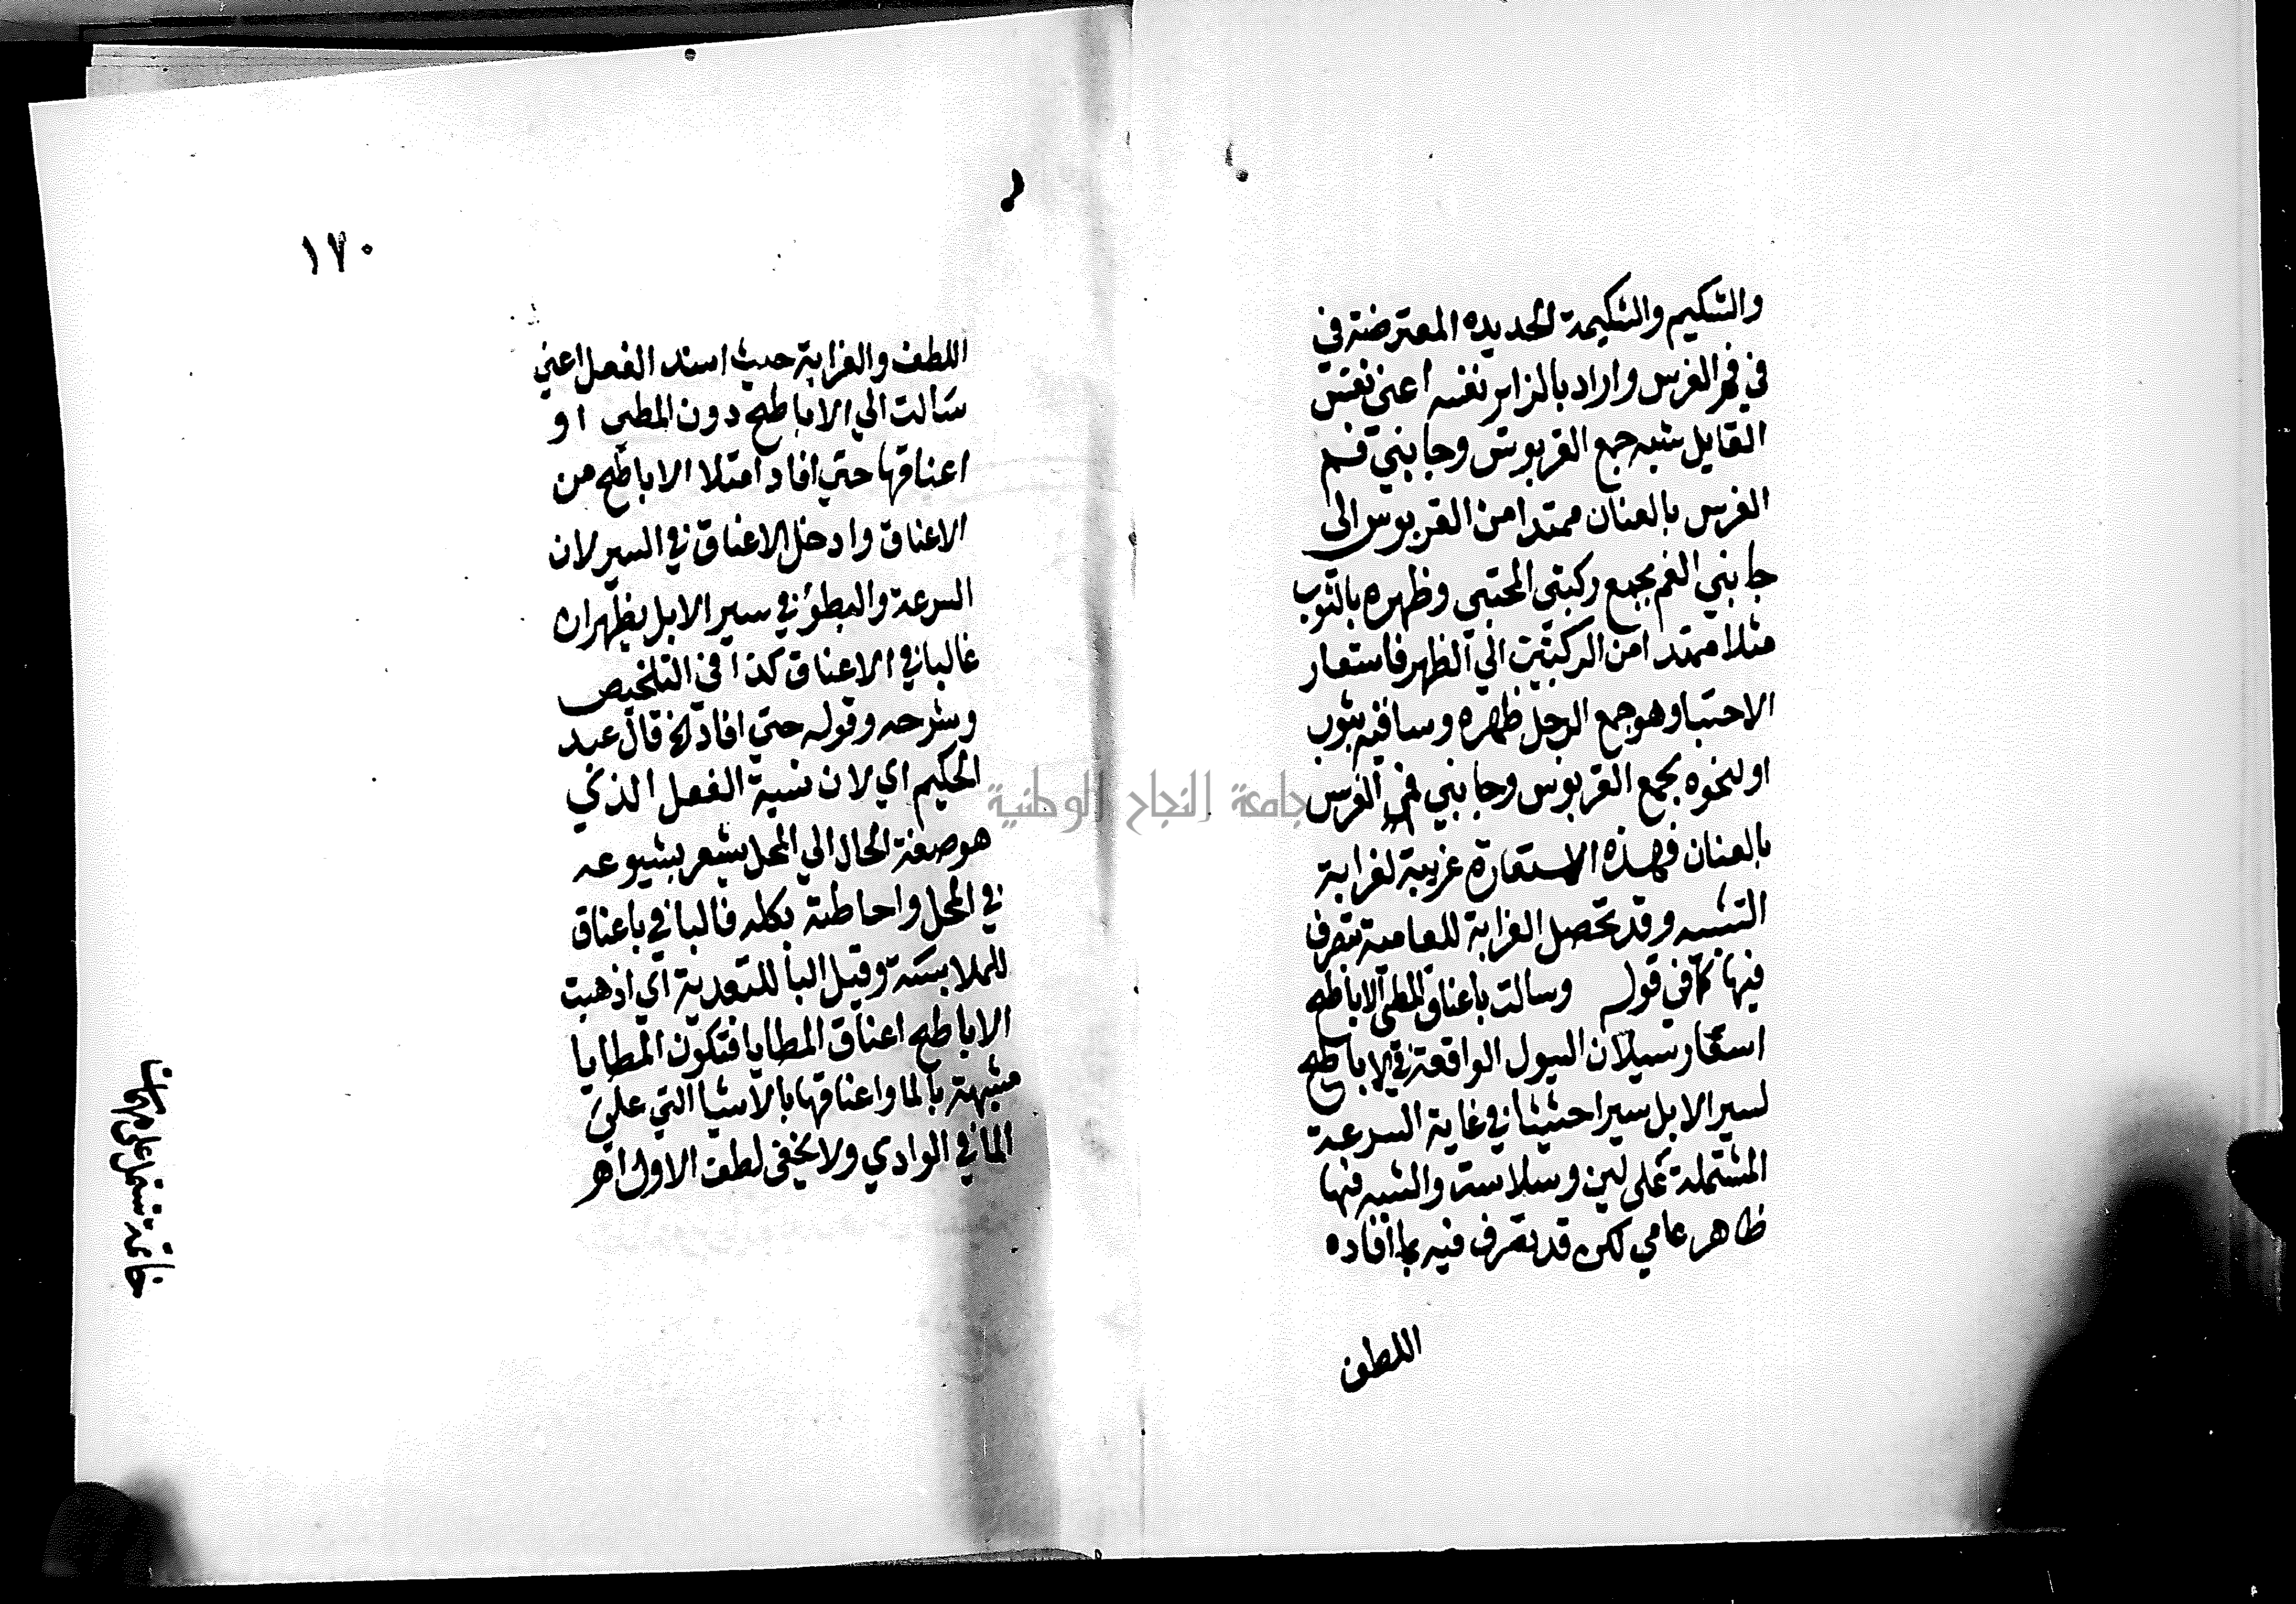 والشكيم والشكيمة الحديده المعترضة في
في فم الفرس واراد بالزاير نفسه اعني نفس
القايل شبه جمع القربوس وجانبي فم
الفرس بالعنان ممتدا من القربوس الى
جانبي الفم بجمع ركبتي المحتبى وظهره بالثوب
مثلا ممتدا من الركبتين الي الظهر فاستعار
الاحتبا وهو جمع الرجل ظهره وساقيه بثوب
او نحوه بجمع القربوس وجانبي فم الفرس
بالعنان فهذه الاستعارة غريبة لغرابة
التشبيه وقد تحصل الغرابة للعامية بتصرف
فيها كما في قوله وسالت باعناق المطى الاباطح
استعار سيلان السيول الواقعة في الاباطح
لسير الابل سيرا حثيثا في غاية السرعة
المشتملة على لين وسلاسة والشبه فيها
ظاهر عامي لكن قد تصرف فيه بما افاده
اللطف
١٧٠
اللطف والغرابة حيث اسند الفعل اعني
سالت الي الاباطح دون المطي او
اعناقها حتي افاد امتلا الاباطح من
الاعناق وادخل الاعناق في السير لان
السرعة والبطؤ في سير الابل يظهران
غالبا في الاعناق كذا في التلخيص
وشرحه وقوله حتي افاد الخ قال عبد
الحكيم اي لان نسبة الفعل الذي
هو صفة الحال الي المحل يشعر بشيوعه
في المحل واحاطته بكله فالبا في باعناق
للملابسة وقيل البا للتعدية اي اذهبت
الاباطح اعناق المطايا فتكون المطايا
مشبهة بالما واعناقها بالاشيا التي على
الما في الوادي ولا يخفى لطف الاول اهر
خاتمة تشتمل على
جامعة النجاح الوطنية